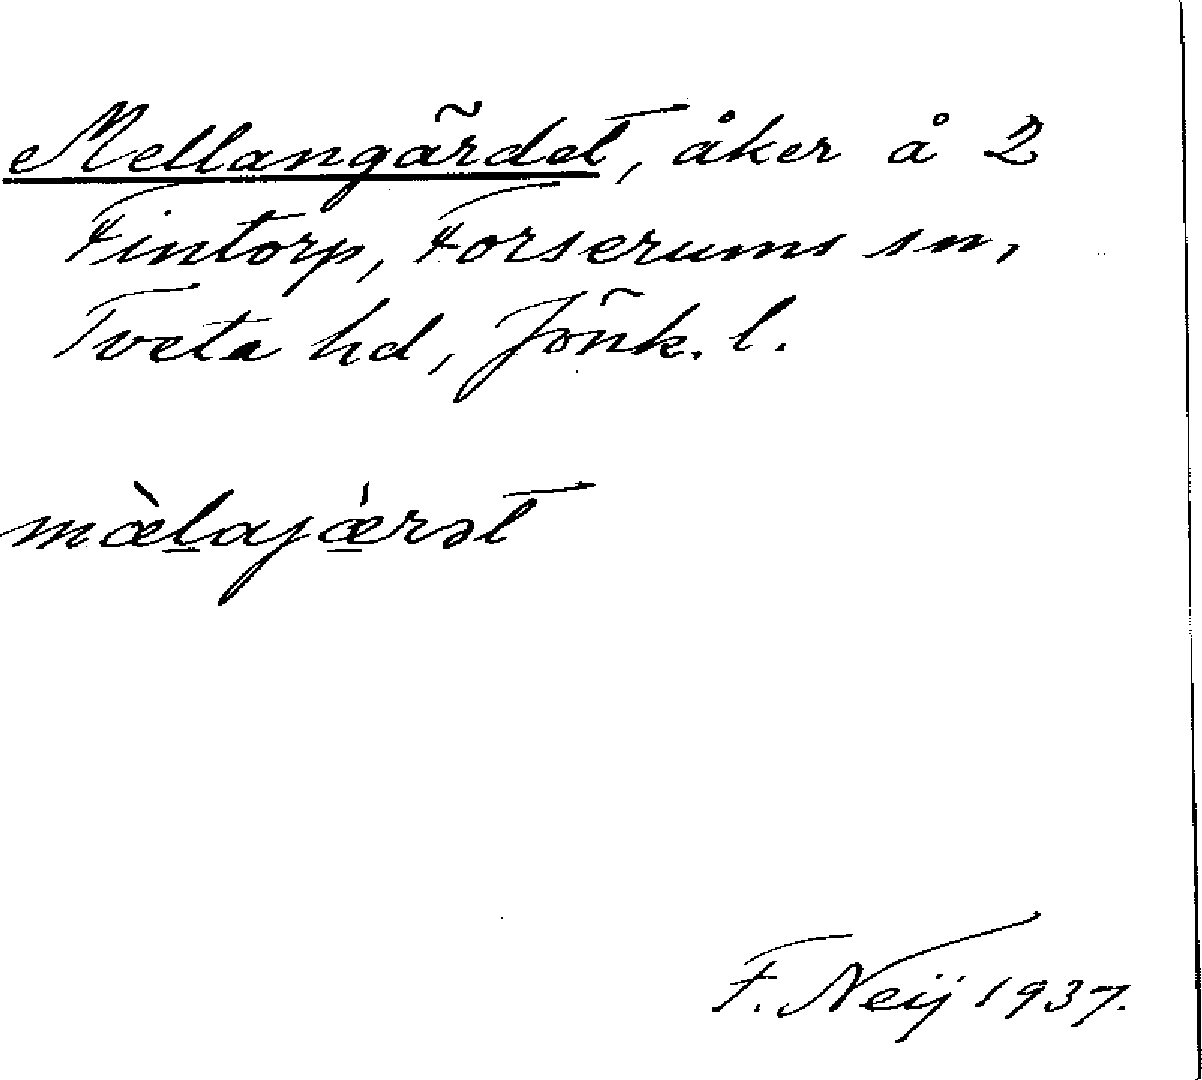 Mellangärdet, åker å 2
Fintorp, Forserums sn,
Tveta hd, Jönk. l.
mæ̀l̠ajǽ̠rət
F. Neij 1937.